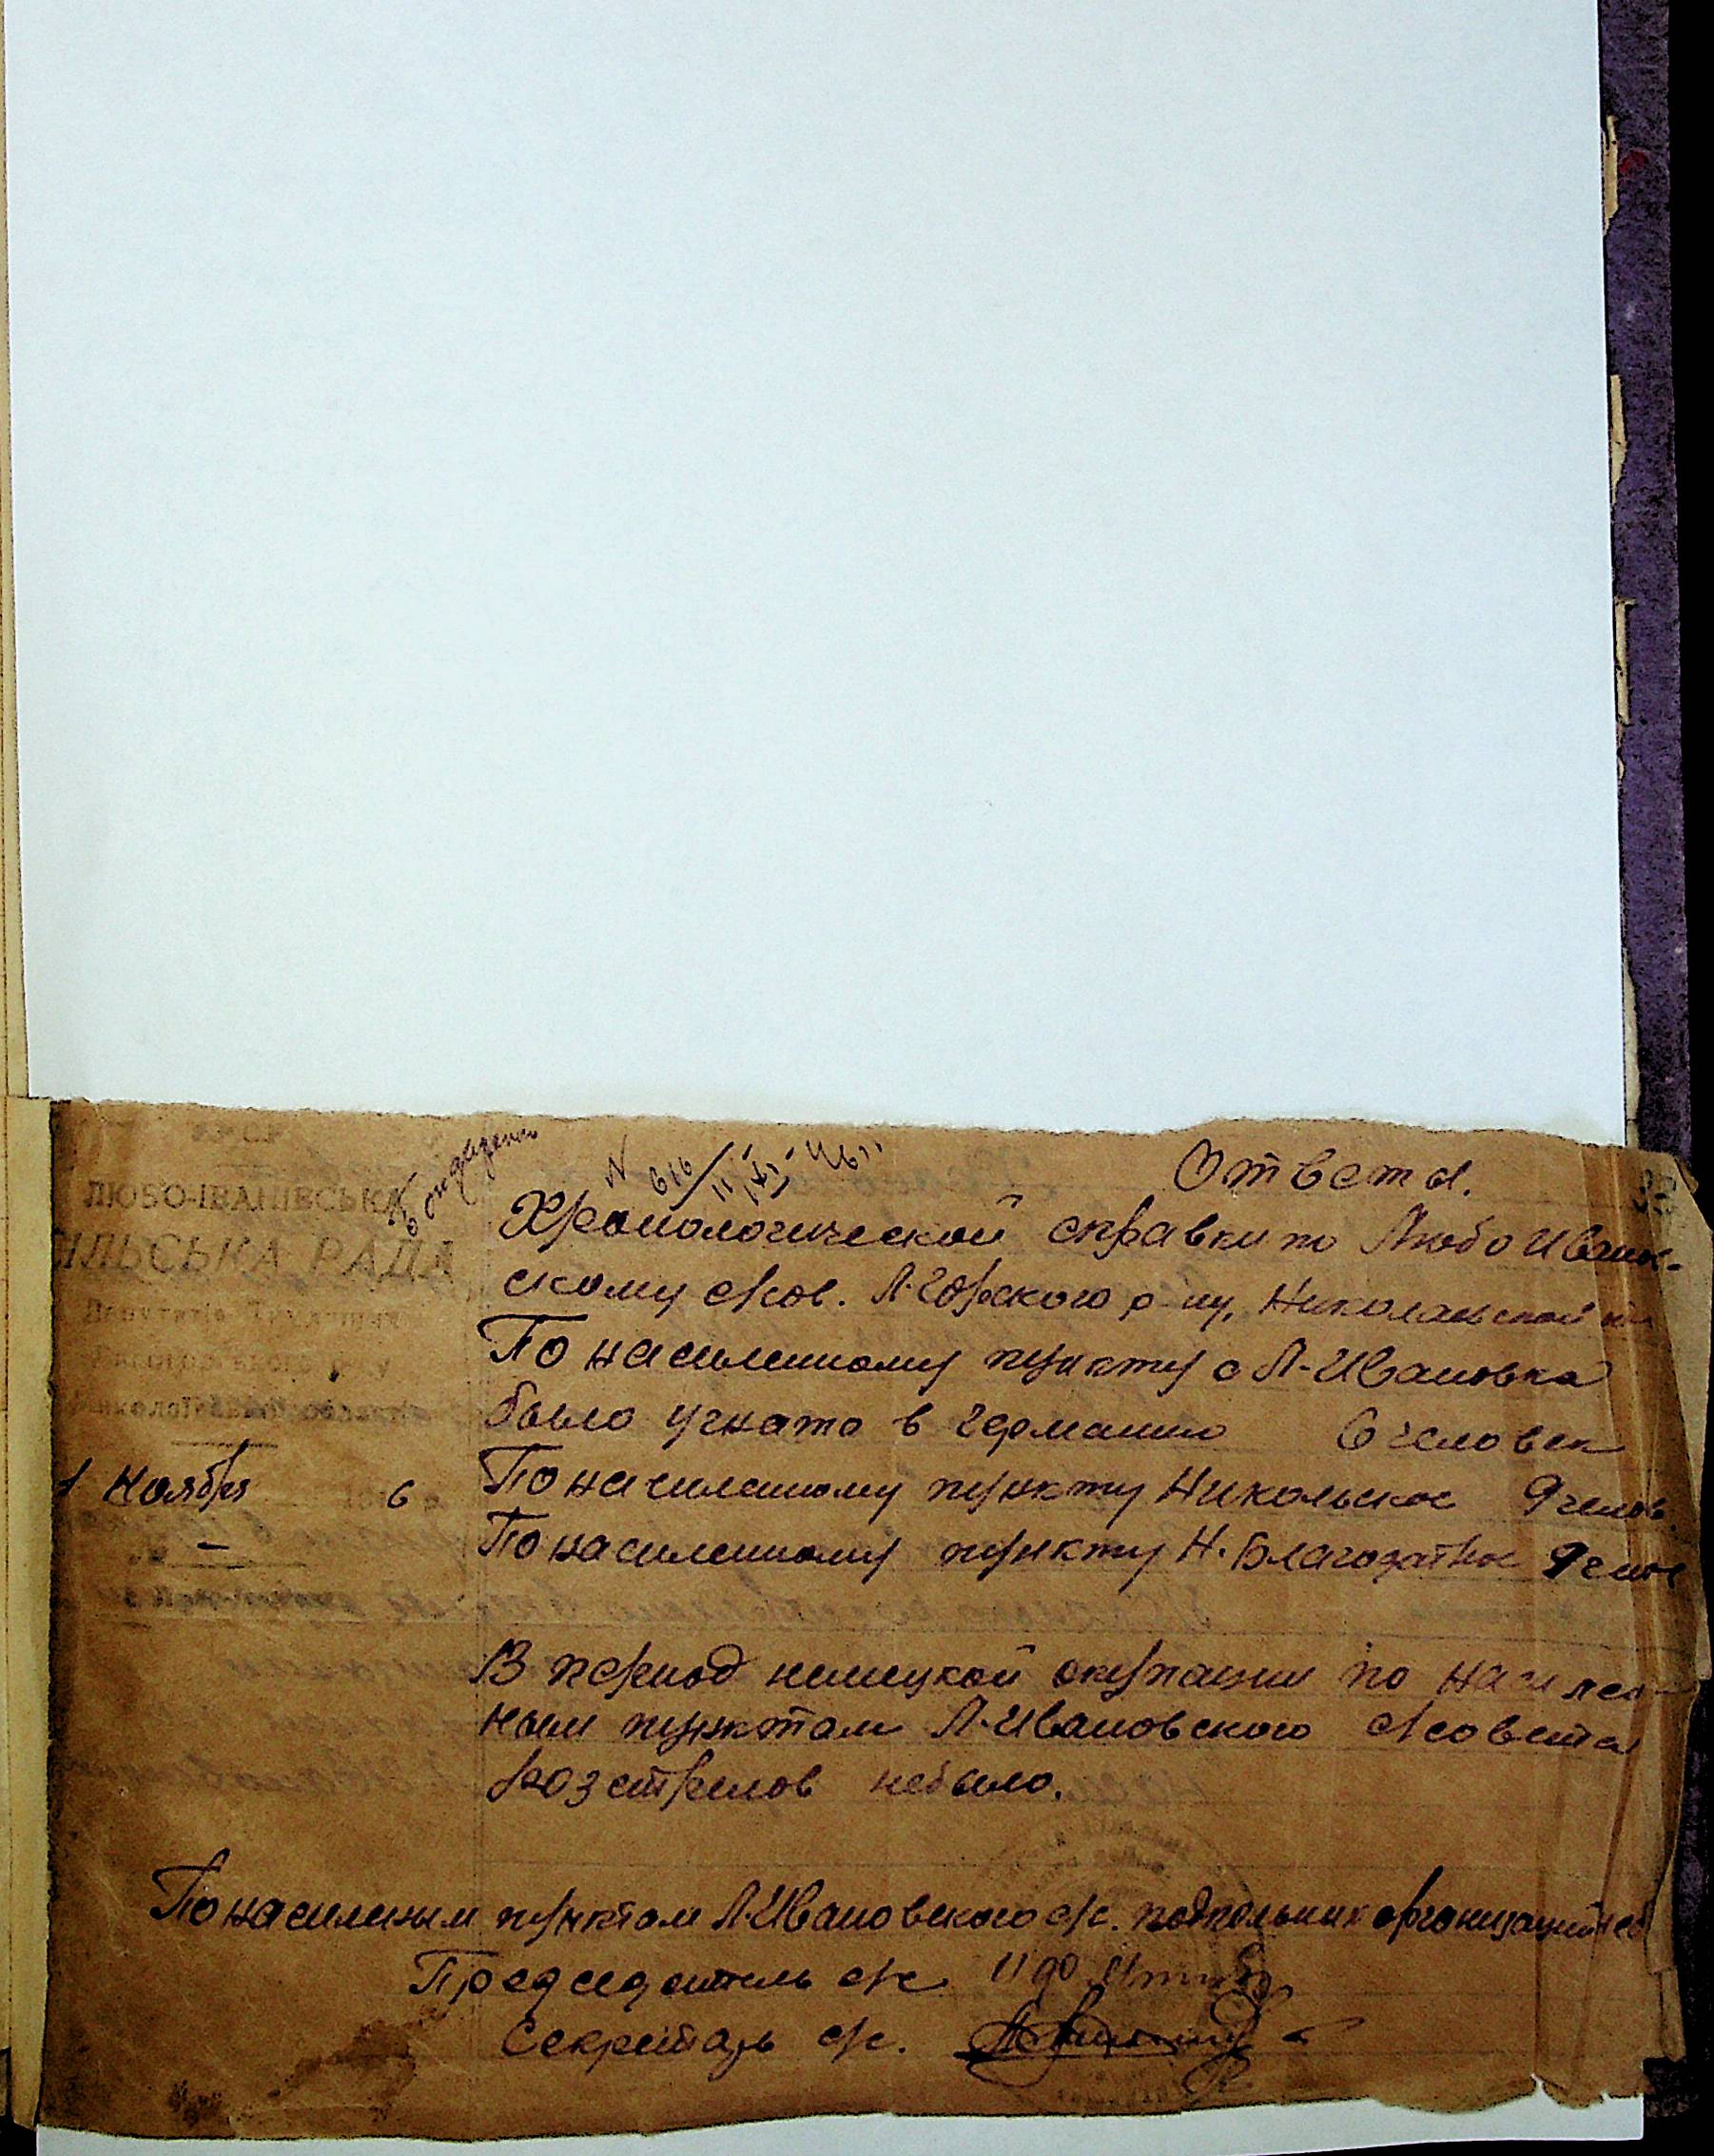 ЛЮБО-ІВАНІВСЬКА
СІЛЬСЬКА РАДА
Депутатів Трудящих
1 Ноября 6
N 616/11
Ответы.
Хронологической справки по Любо Иванов-
скому с/сов. Л-Горского р-ну, Николаевской
По насиленному пункту с Л-Ивановка
было угнато в германию 6 человек
По насиленному пункту Никольское 9 челов.
По насиленному пункту Н. Благодатное 9 челов
В период немецкой окупации по насилен-
ным пунктам Л-Ивановского с/совета
розстрелов небыло.
По насиленым пунктам Л-Ивановского с/с. подпольных организаций
Председатель с/с
Секретарь с/с.